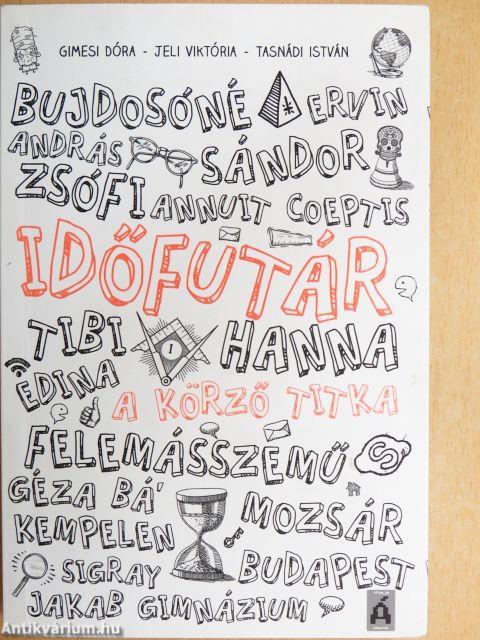 GIMESI DÓRA - JELI VIKTÓRIA - TASNÁDI ISTVÁN
BUJDOSÓNÉ ERVIN
ANDRÁS SÁNDOR
ZSÓFI ANNUIT COEPTIS
IDŐFUTÁR
TIBI HANNA
EDINA
A KÖRZŐ TITKA
FELEMÁSSZEMŰ
GÉZA BÁ'
MOZSÁR
KEMPELEN
SIGRAY BUDAPEST
JAKAB GIMNÁZIUM
Á
Antikvárium.hu